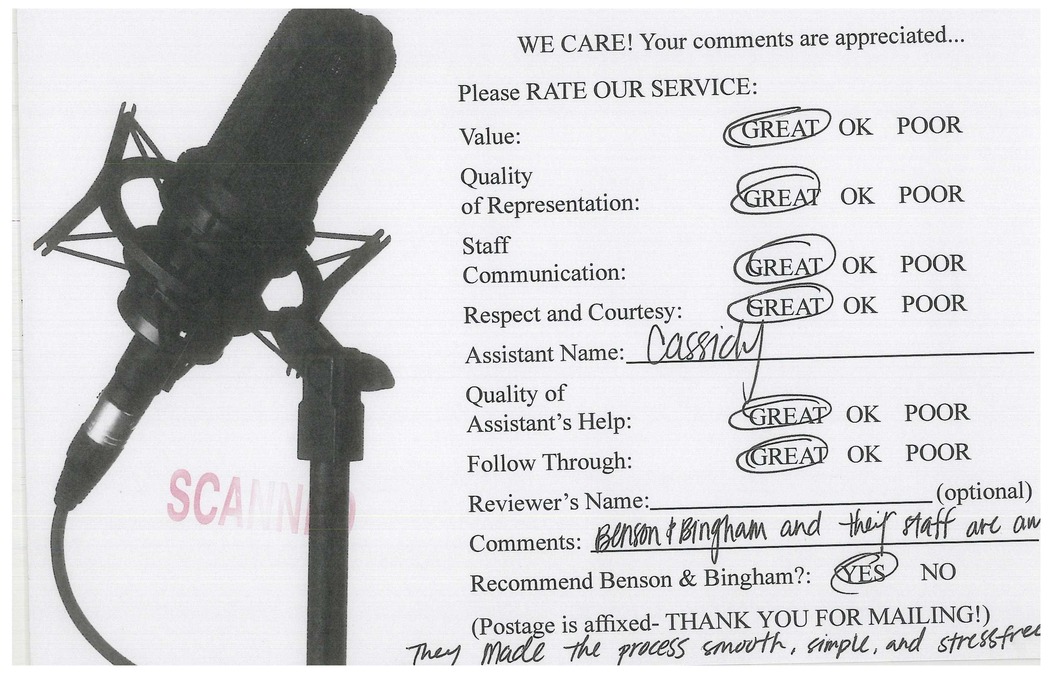 WE CARE! Your comments are appreciated...
Please RATE OUR SERVICE:
Value: GREAT OK POOR
Quality
of Representation: GREAT OK POOR
Staff
Communication: GREAT OK POOR
Respect and Courtesy: GREAT OK POOR
Assistant Name: Cassidy
Quality of
Assistant's Help: GREAT OK POOR
Follow Through: GREAT OK POOR
SCANNED
Reviewer's Name: (optional)
Comments: Benson & Bingham and their staff are am
Recommend Benson & Bingham?: YES NO
(Postage is affixed- THANK YOU FOR MAILING!)
They made the process smooth, simple, and stressfree